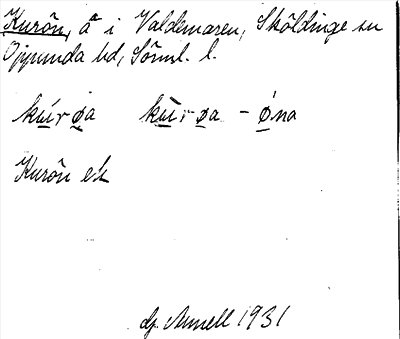 Kurön, ä i Valdemaren, Sköldinge sn
Oppunda hd, Söml. l.
kúrøa kùrøa - øna
Kurön
1931